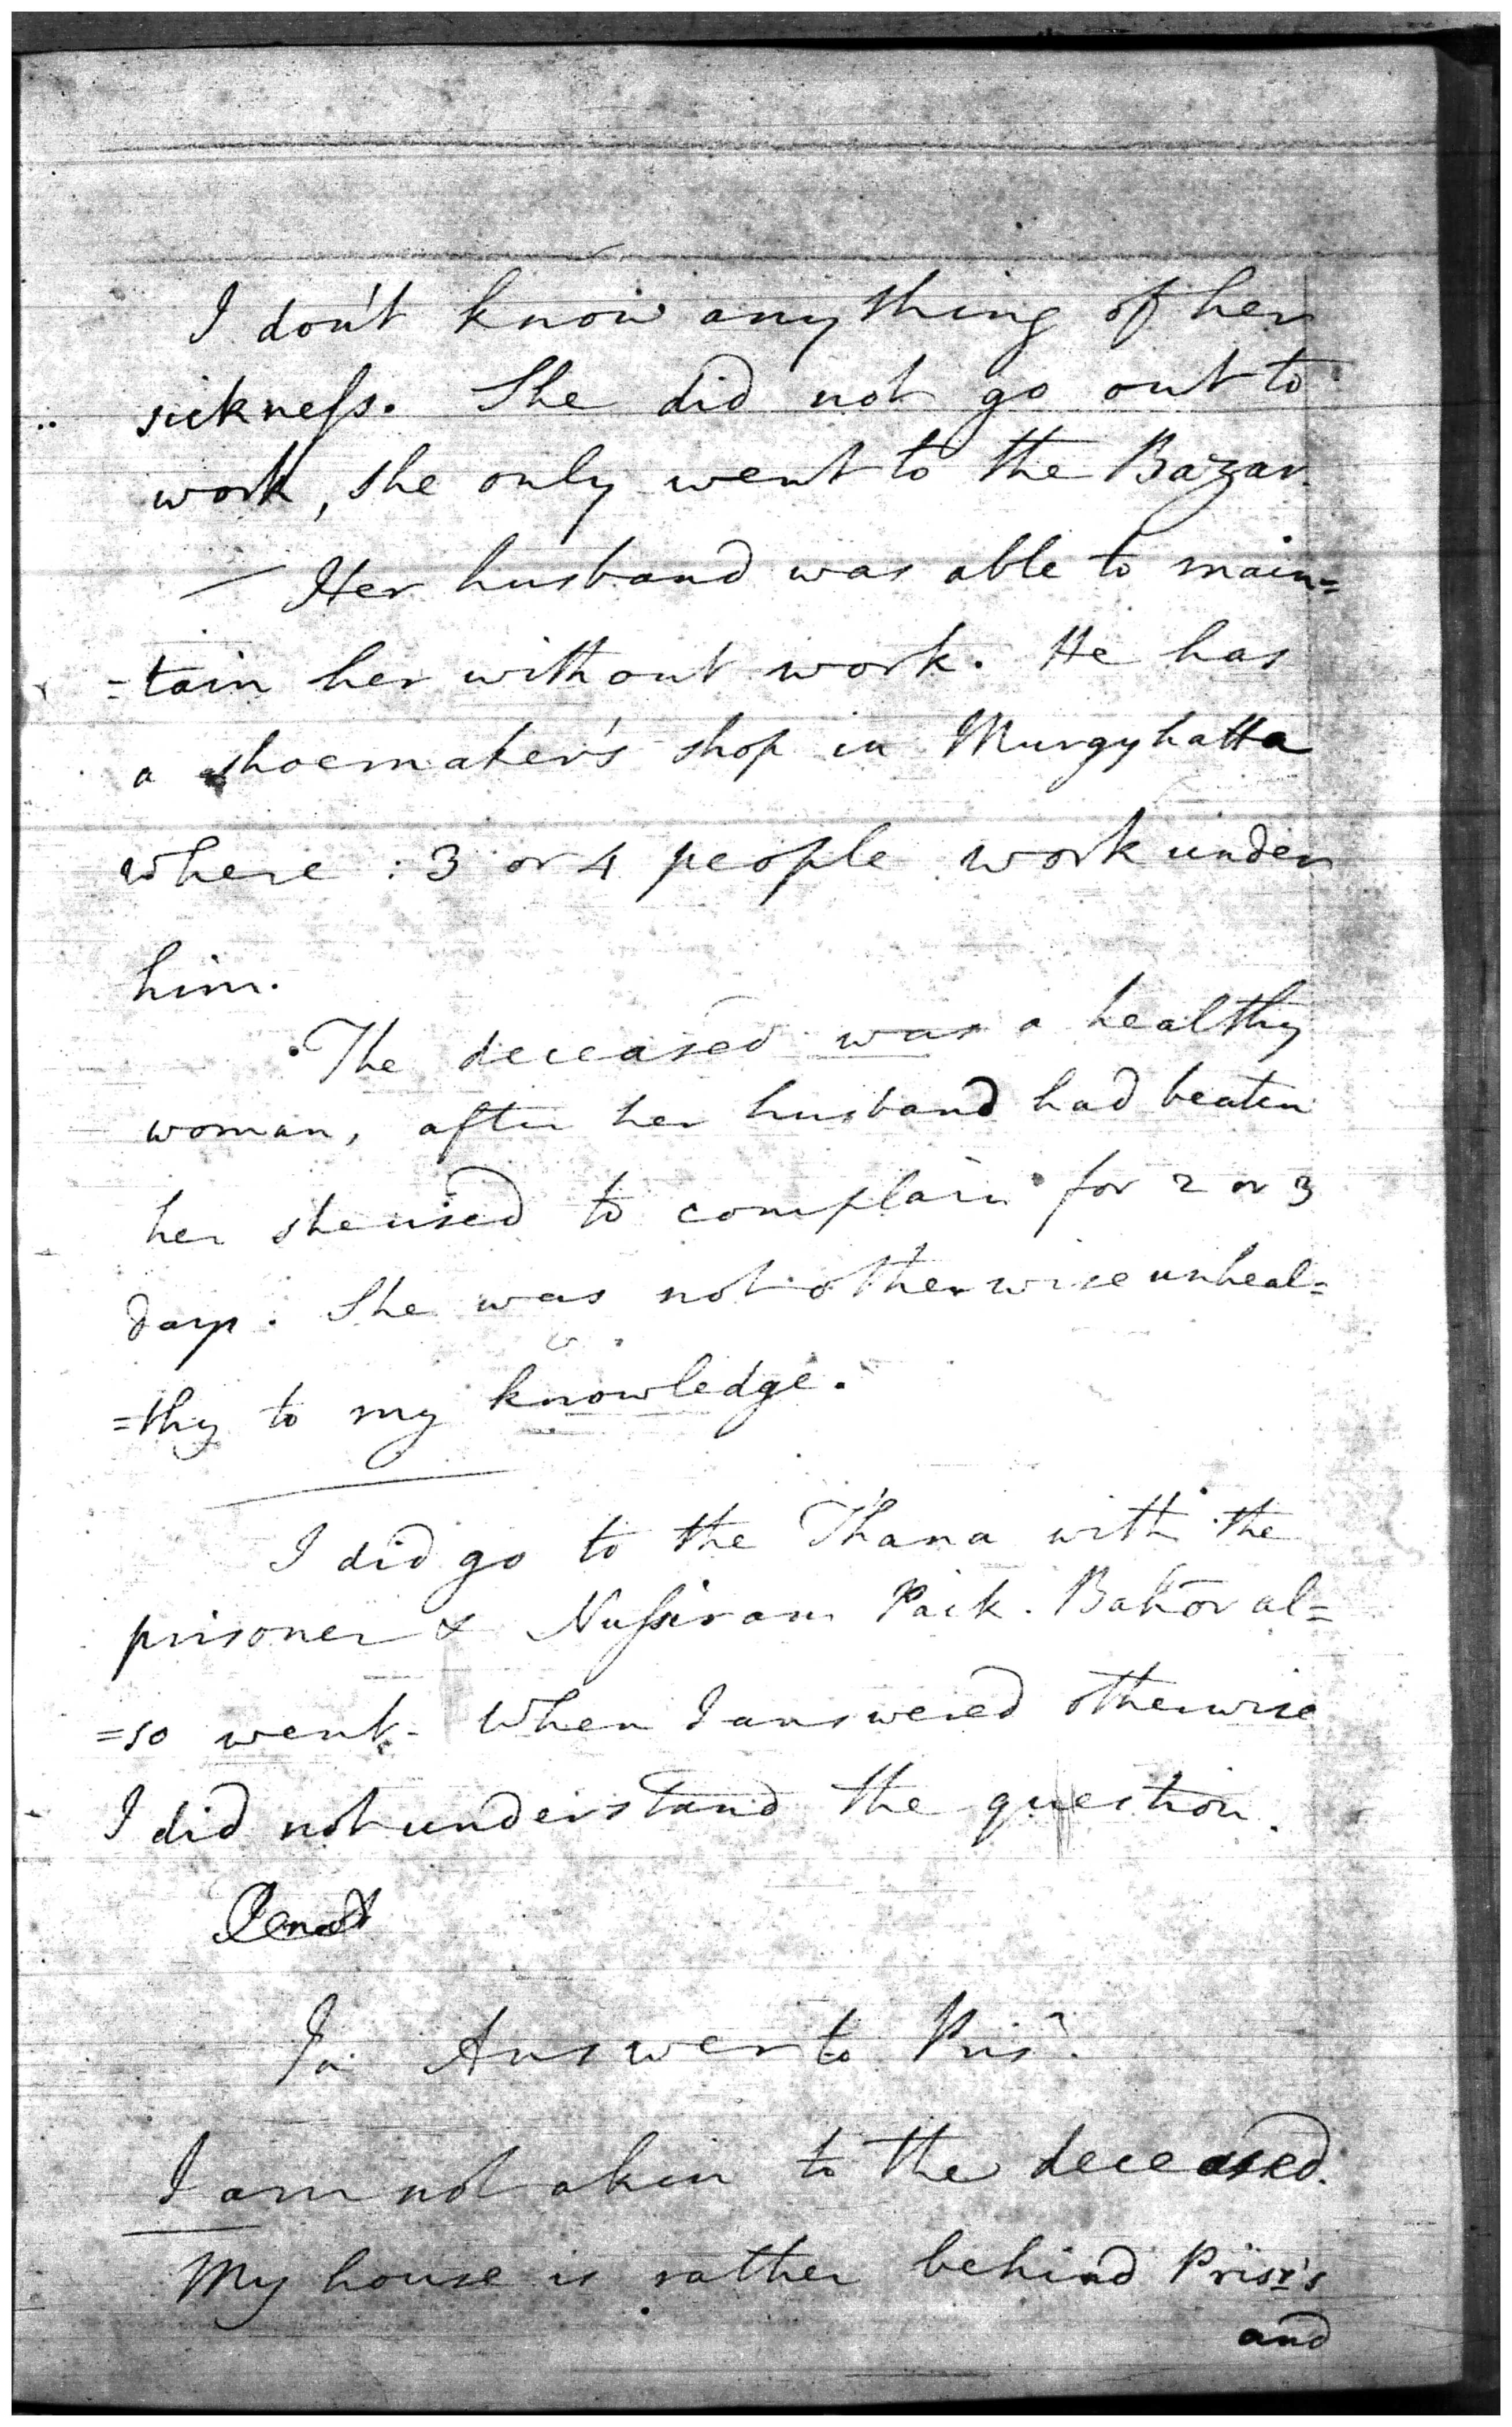 I don't know any thing of her
sickneſs. She did not go out to
work, she only went to the Bazar.
— Her husband was able to main=
=tain her without work. He has
a shoemaker's shop in Murgyhatta
where : 3 or 4 people work under
him.
The deceased was a healthy
woman, after her husband had beaten
her she used to complain for 2 or 3
days. She was not otherwise unheal=
=thy to my knowledge.
I did go to the Thana with the
prisoner & Nuſsiram Paik. Bakor al=
=so went. When I answered otherwise
I did not understand the question.
In Answer to Prisr.
I am not akin to the deceased.
My house is rather behind Prisr's
and